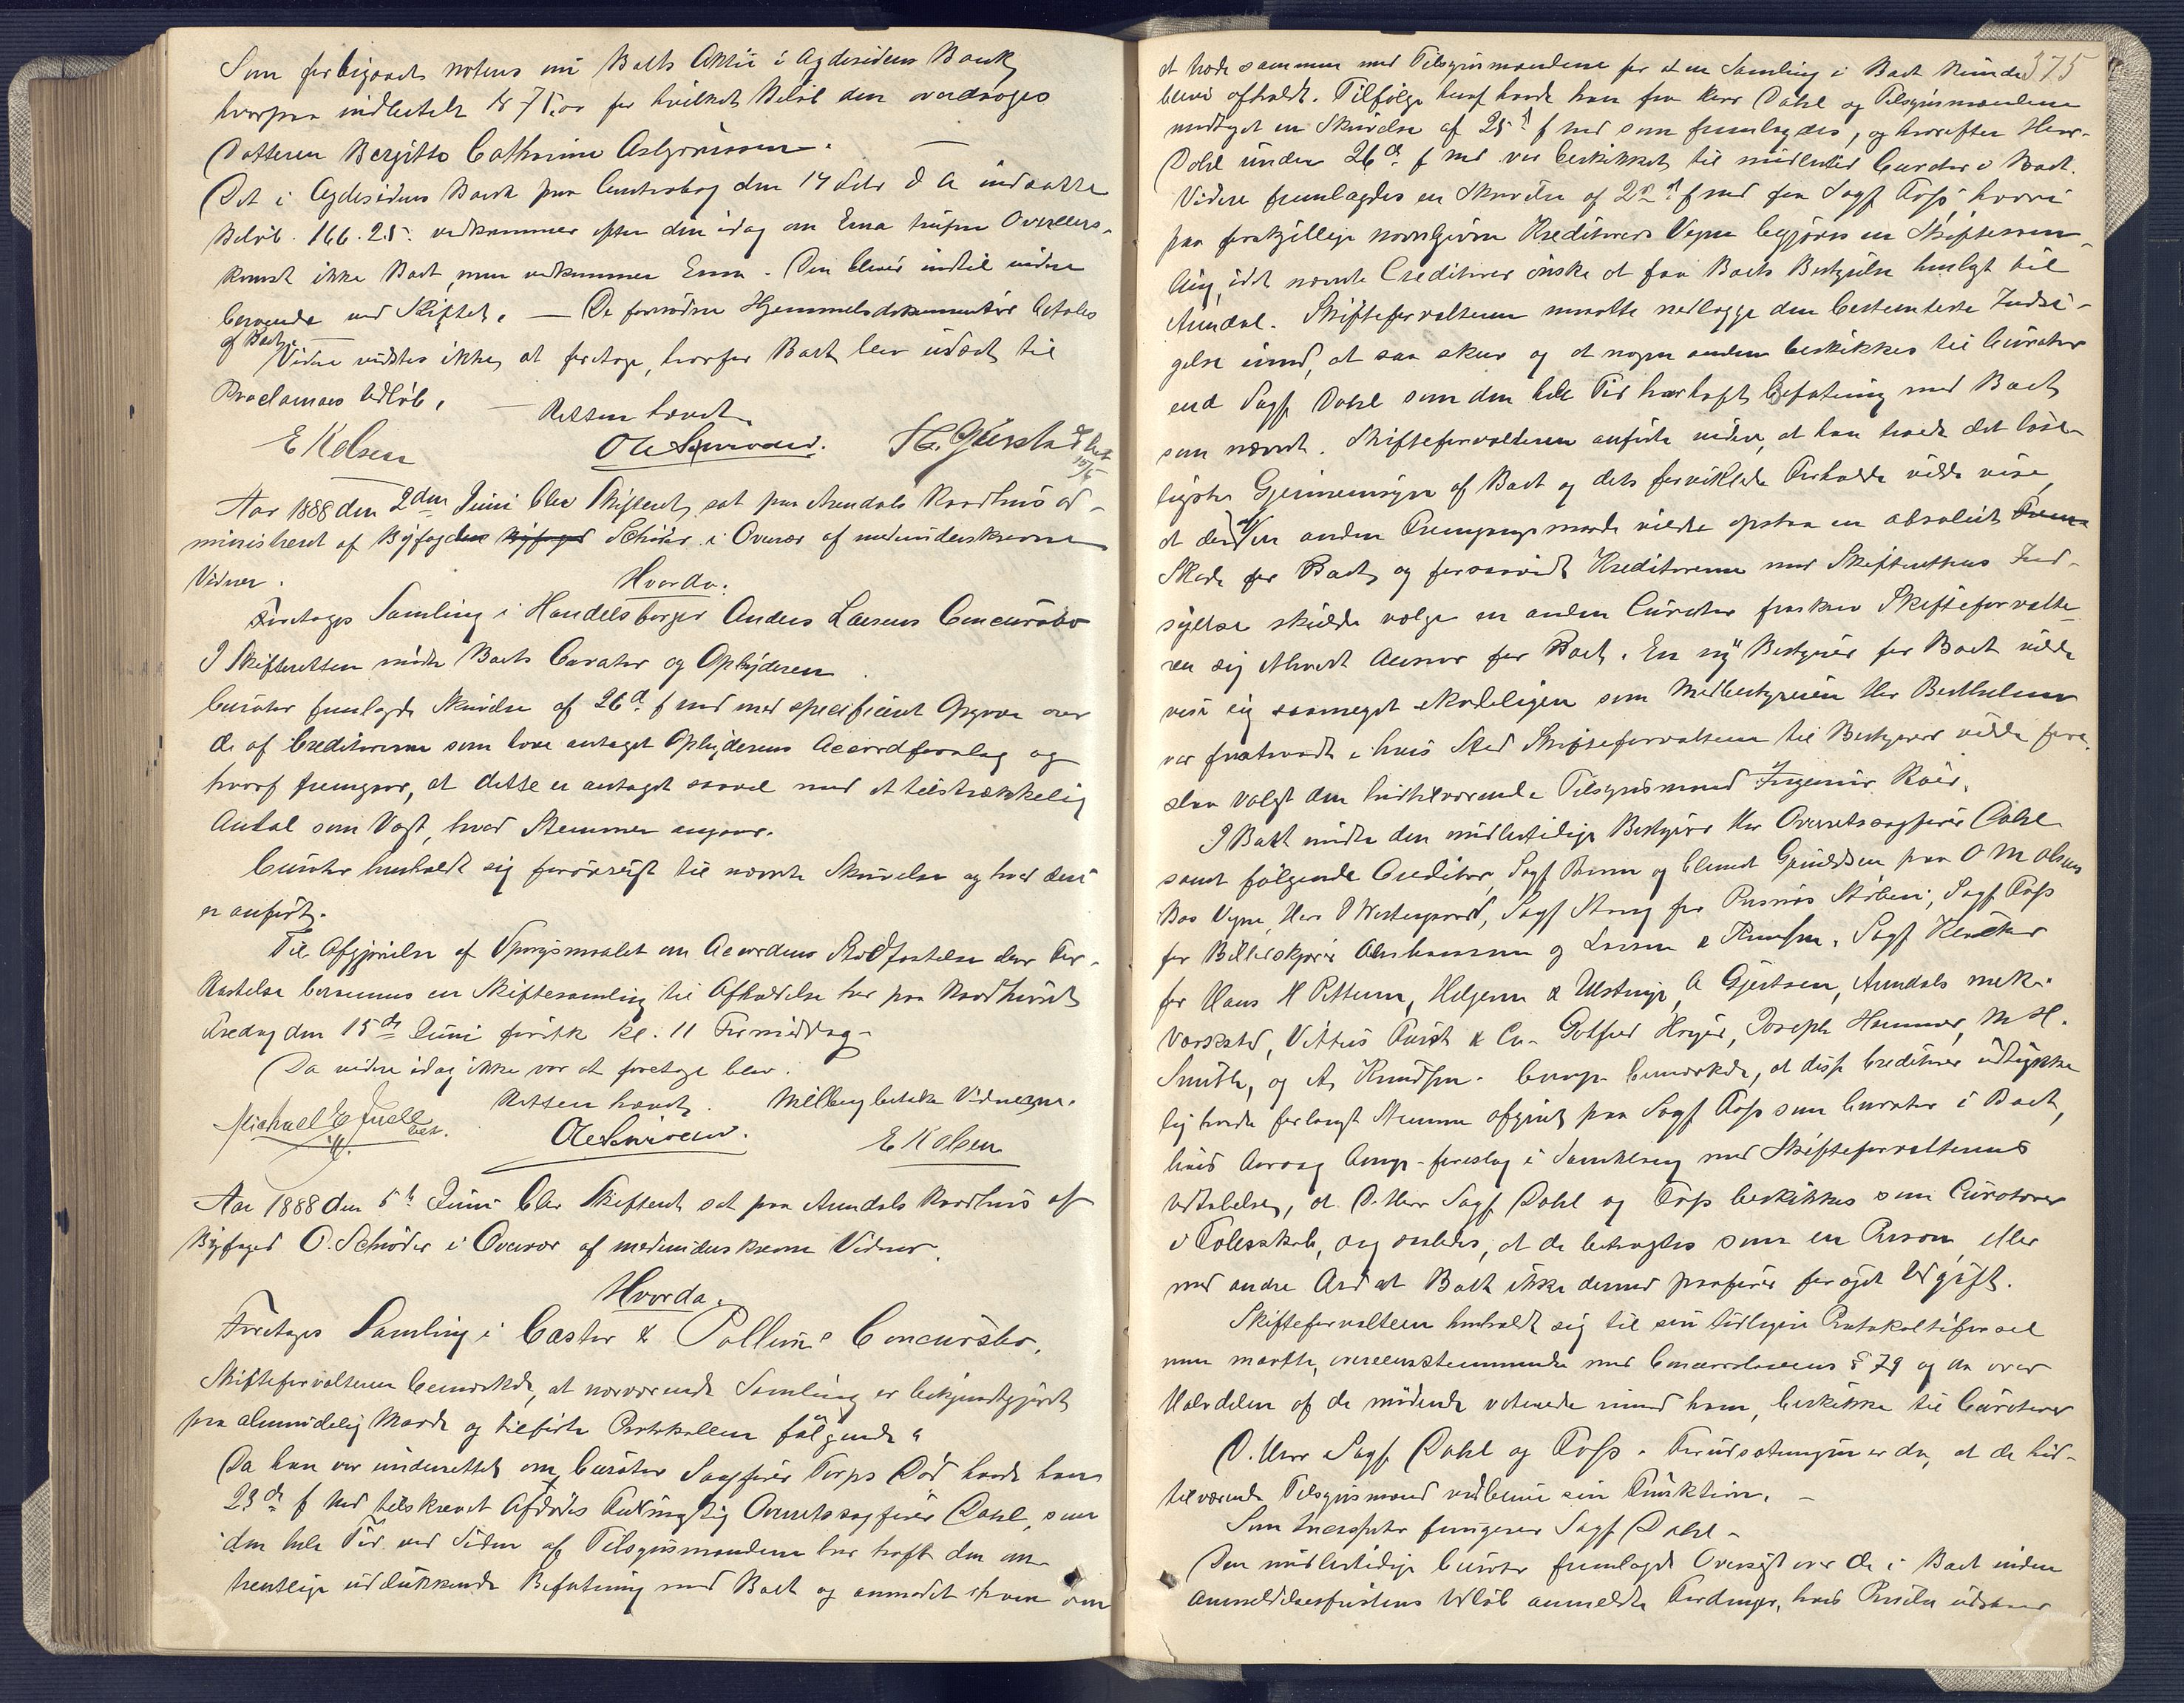 Som forbigaaet noteres en Boets Aktie i Agdesidens Bank
hvorpaa indbetalt Kr 75.00 for hvilket Beløb den overdrages
Datteren Bergitte Cathrine Asbjørnsen. —
Det i Agdesidens Bank paa Contrabog den 14 d A indsatte
Beløb 166.25. vedkommer efter den idag om Ema trufne Overens-
komst ikke Boet, men vedkommer Ema. Den bliver indtil videre
beroende ved Skiftet. — De fornødne Hjemmelsdokumenter betales
af Boet. —
Videre vidstes ikke at foretage, hvorfor Boet blev udsat til
Proclamaes Udløb. — Retten hævet.
E Kolsen O Schrøder. H. Gjerstad
Aar 1888 den 2den Juni blev Skifteret sat paa Arendals Raadhus ad-
ministreret af Byfoged Schrøder i Overvær af medunderskrevne
Vidner.
Hvorda:
Foretoges Samling i Handelsborger Anders Larsens Concursbo
I Skifteretten mødte Boets Curator og Opbyderen.
Curator fremlagde Skrivelse af 26de f Md med specificeret Opgave over
de af Creditorerne som have antaget Opbyderens Accordforslag og
hvoraf fremgaar, at dette er antaget saavel med et tilstrækkelig
Antal som Vægt, hvad Stemmer angaar.
Curator henholdt sig forøvrigt til nævnte Skrivelse og hvad deri
er anført.
Til Afgjørelse af Spørgsmaalet om Accordens Stadfæstelse eller For-
kastelse berammes en Skiftesamling til Afholdelse her paa Raadhuset
Fredag den 15de Juni førstk kl. 11 Formiddag.
Da videre idag ikke var at foretage blev.
Retten hævet. Melberg betalte Vidnerne.
Michael E Juell O Schrøder. E Kolsen
Aar 1888 den 5te Juni blev Skifteret sat paa Arendals Raadhus af
Byfoged O. Schrøder i Overvær af medunderskrevne Vidner.
Hvorda:
Foretoges Samling i Castor & Pollux's Concursbo.
Skifteforvalteren bemærkede, at nærværende Samling er bekjendtgjort
paa almindelig Maade og tilførte Protokollen følgende:
Da han var underrettet om Curator Sagfører Torps Død havde han
23de f Md tilskrevet Afdødes Fuldmægtig Overretssagfører Dahl, som
den hele Tid ved Siden af Tilsynsmændene har haft den om-
trentlige udelukkende Befatning med Boet og anmodet ham om
375
at træde sammen med Tilsynsmændene for at en Samling i Boet kunde
blive afholdt. Tilfølge heraf havde han fra Herr Dahl og Tilsynsmændene
modtaget en Skrivelse af 25de f Md som fremlagdes, og hvorefter Herr
Dahl under 26de f Md var beskikket til midlertidig Curator i Boet.
Videre fremlagdes en Skrivelse af f Md fra Sagf Torp hvori
paa forskjellige navngivne Kreditorers Vegne begjæres en Skiftesam-
ling, idet nævnte Creditorer ønske at faa Boets Bestyrelse henlagt til
Arendal. Skifteforvalteren maatte nedlægge den bestemteste Indsi-
gelse imod, at saa skeer og at nogen anden beskikkes til Curator
end Sagf Dahl som den hele Tid har haft Befatning med Boet
som nævnt. Skifteforvalteren anførte videre, at han troede det løse-
ligste Gjennemsyn af Boet og dets forviklede Forholde vilde vise
at der ved en anden Fremgangsmaade vilde opstaa en absolut
Skade for Boet, og forsaavidt Kreditorerne mod Skifterettens Ind-
sigelse skulde vælge en anden Curator fraskrev Skifteforvalte-
ren sig ethvert Ansvar for Boet. En ny Bestyrer for Boet vilde
vise sig saameget skadeligere som Medbestyreren Herr Berthelsen
var fratraadt i hvis Sted Skifteforvalteren til Bestyrer vilde fore-
slaa valgt den hidtilværende Tilsynsmand Ingeniør Roer.
I Boet mødte den midlertidige Bestyrer Herr Overretssagfører Dahl
samt følgende Creditorer, Sagf og Clement Gundersen paa O M Olsens
Bos Vegne, Herr O Westergaard, Sagf Stang for Pusnæs Støberi, Sagf Torp
for Billedskjærer Abrahamsen og Larsen & Knudsen. Sagf
for Hans H Pettersen, Helgesen & Ulstrup, A Gjertsen, Arendals mek.
Værksted, Vittus & Co. Gotfred Høyer, Joseph Hammer, M H.
Smith, og A. Knudsen. Comp. bemærkede, at disse Creditorer udtrykke-
lig havde forlangt Stemme afgivet paa Sagf Torp som Curator i Boet,
hvis Aarsag Comp. foreslog i Samklang med Skifteforvalterens
Udtalelser, at D'Herr Sagf Dahl og Torp beskikkes som Curatorer
i Fællesskab, dog saaledes, at de betragtes som en Person eller
med andre Ord at Boet ikke derved paaføres forøget Udgift.
Skifteforvalteren henholdt sig til sin tidligere Protokoltilførsel
men maatte, overensstemmende med Concurslovens § 79 og da over
Halvdelen af de mødende voterede imod ham, beskikke til Curatorer
D. Herr Sagf Dahl og Torp. Forudsætningen er da, at de hid-
tilværende Tilsynsmænd vedbliver sin Funktion. —
Som fungerer Sagf Dahl.
Den midlertidige Curator fremlagde Oversigt over de i Boet inden
Anmeldelsesfristens Udløb anmeldte Fordringer, hvis